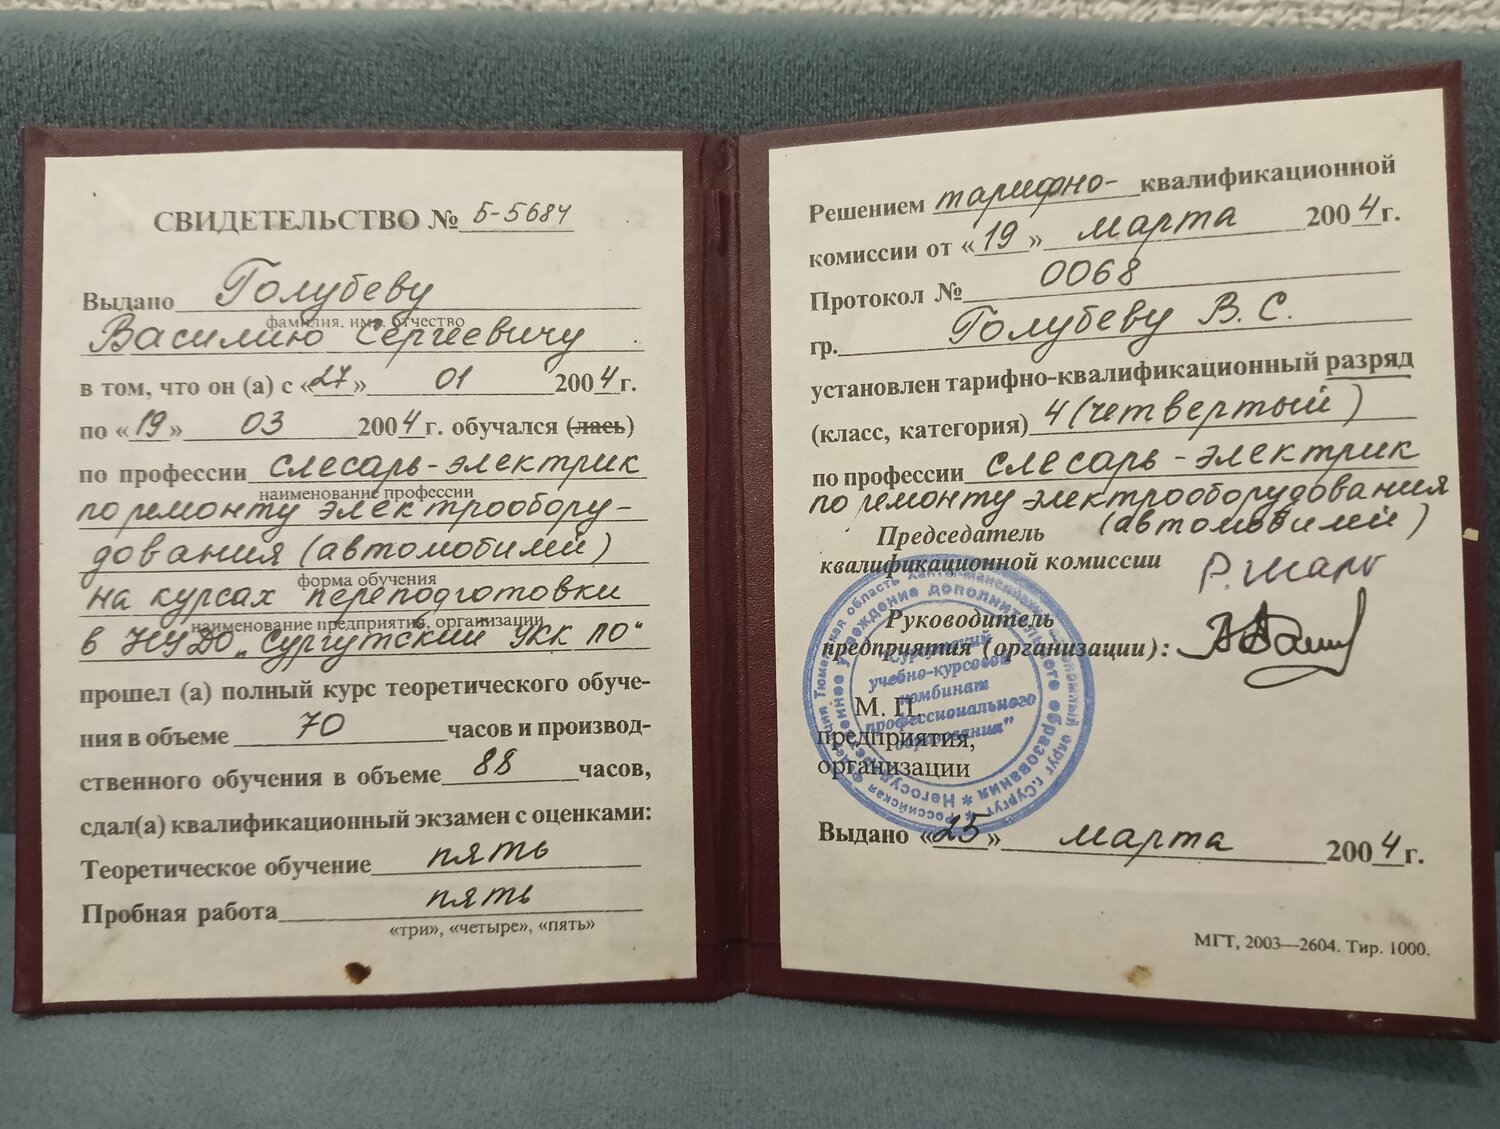 СВИДЕТЕЛЬСТВО № Б-5684
Выдано Голубеву
фамилия, имя, отчество
Василию Сергеевичу
в том, что он (а) с «27» 01 2004 г.
по «19» 03 2004 г. обучался (лась)
по профессии слесарь-электрик
наименование профессии
по ремонту электрообору-
дования (автомобилей)
форма обучения
на курсах переподготовки
наименование предприятия, организации
в НУДО „Сургутский УКК ПО"
прошел (а) полный курс теоретического обуче-
ния в объеме 70 часов и производ-
ственного обучения в объеме 88 часов,
сдал(а) квалификационный экзамен с оценками:
Теоретическое обучение пять
Пробная работа пять
«три», «четыре», «пять»
Решением тарифно-квалификационной
комиссии от «19» марта 2004 г.
Протокол № 0068
гр. Голубеву В. С.
установлен тарифно-квалификационный разряд
(класс, категория) 4 (четвертый)
по профессии слесарь-электрик
по ремонту электрооборудования
(автомобилей)
Председатель
квалификационной комиссии
Руководитель
предприятия (организации):
М. П.
предприятия,
организации
Российская Федерация Тюменская область Ханты-Мансийский автономный округ г. Сургут
Негосударственное учреждение дополнительного образования
"Сургутский
учебно-курсовой
комбинат
профессионального
образования"
Выдано «25» марта 2004 г.
МГТ, 2003—2604. Тир. 1000.